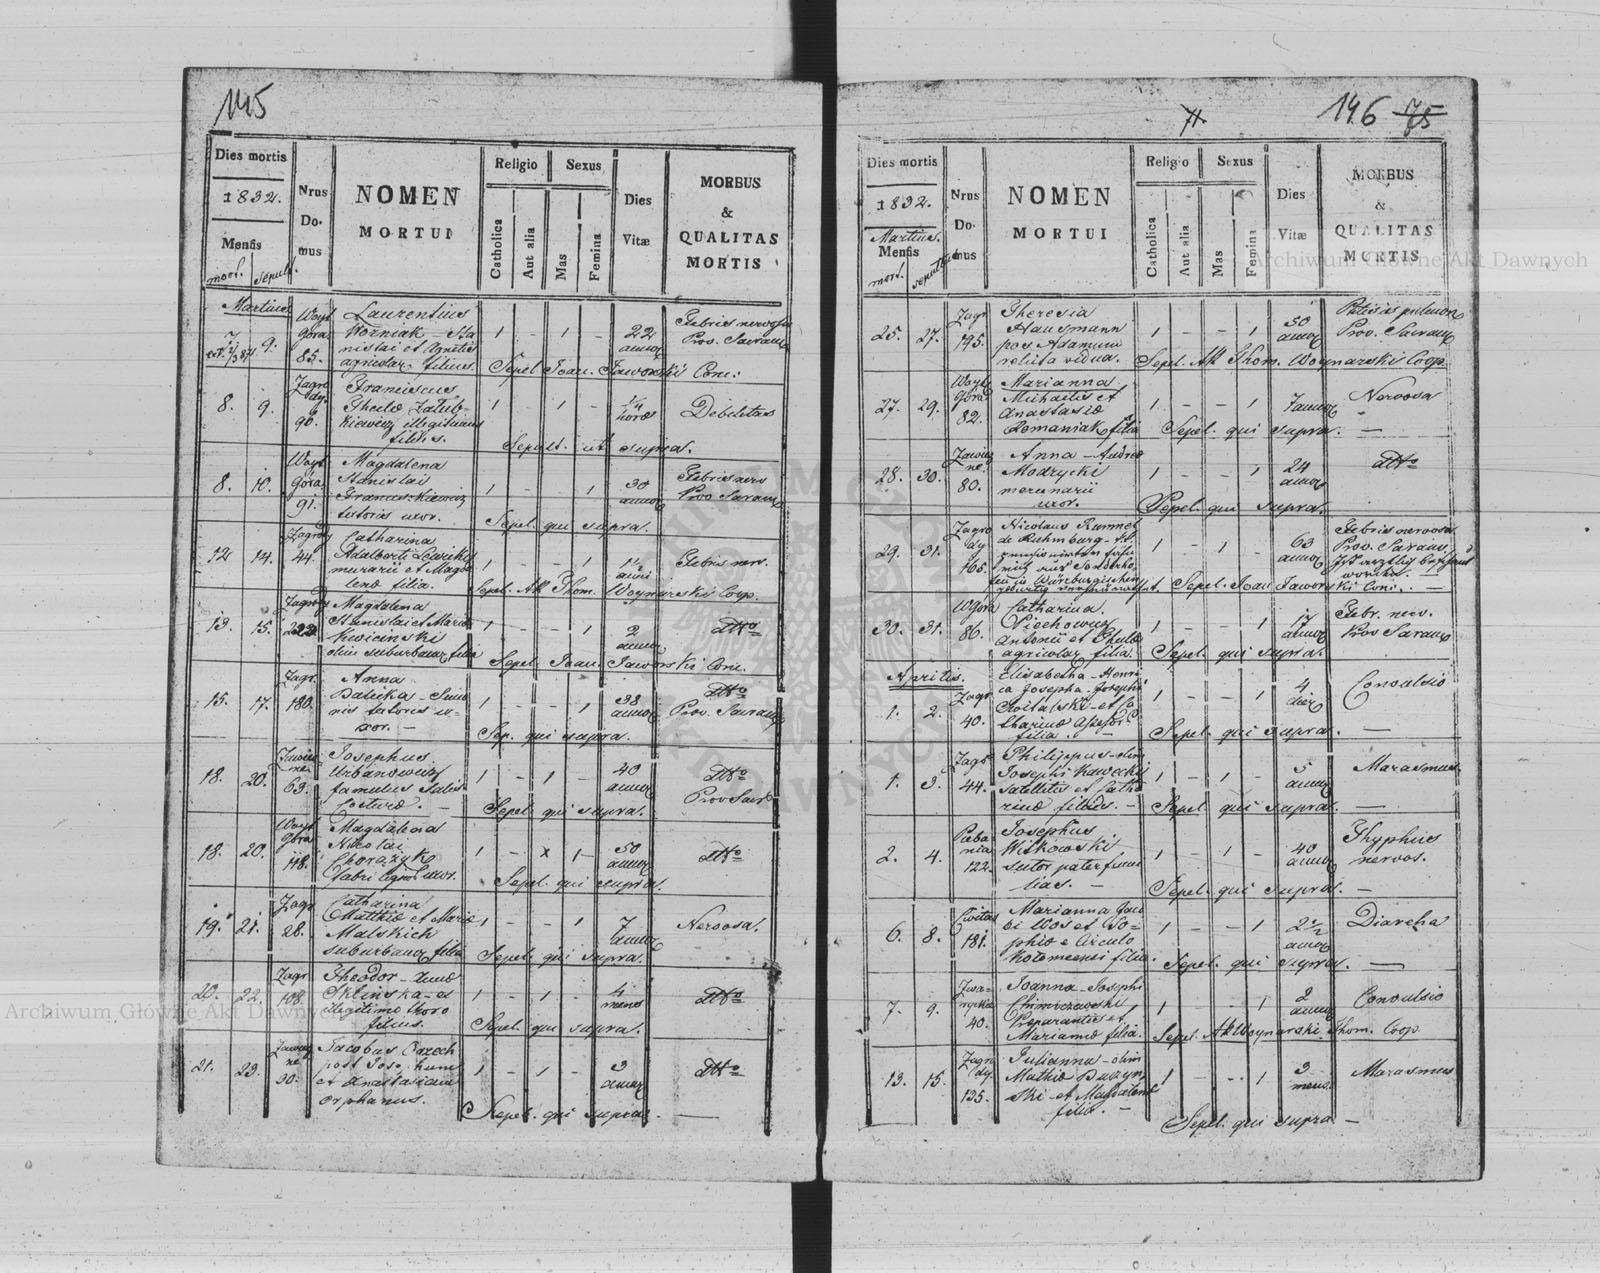 145
Dies mortis
1832.
Mensis
mort. sepult.
Nrus
Do-
mus
NOMEN
MORTUI
Religio
Catholica
Aut alia
Sexus
Mas
Femina
Dies
Vitæ
MORBUS
&
QUALITAS
MORTIS
Martius
7 9.
Woyt
Gora
85.
Laurentius
Woźniak - Sta
nislai et Agnetis
agricolar filius.
1 - 1 -
22
annor
Febris nervosa
Sepel Joan. Jaworski Conc:
8. 9.
Zagro
dy
90.
Franciscus
kiewicz illegitimus
filius.
1 - 1 -
1/4
horæ
Debilitas
Sepult. ut supra.
8. 10.
Woyt
Gora
91.
Magdalena
Stanislai
Franciszkiewicz
uxor.
1 - - 1
30
annor
Sepel. qui supra.
12 14.
Zagrody
44
Catharina
Adalberti
murarii et Magda
lenæ filia.
1 - - 1
1 1/2
anni
Febris nerv.
Sepel. Ak Thom. Woynarski Coop.
13. 15.
Zagrody
Magdalena
Stanislai et Mariæ
Kwicinski
olim suburbanor filia
1 - - 1
2
annor
Dtto
Sepel. Joan. Jaworski Conc.
15. 17.
Zagr.
180.
Anna
uxor. -
1 - - 1
38
annor
Dtto
Sep. qui supra.
18. 20.
63.
Josephus
Urbanowicz
famulus
1 - 1 -
40
annor
Dtto
Sepel. qui supra.
18. 20.
Woyt
Gora
118.
Magdalena
Nicolai
Chorążyk
fabri lign: uxor.
1 - x 1-
50
annor
Dtto
Sepel. qui supra.
19. 21.
Zagr
28.
Catharina
Matthiæ et Mariæ
Malskich
suburbanor filia
1 - - 1
7
annor
Nervosa.
Sepel. qui supra.
20. 22.
Zagr
108.
Theodor - Annæ
Sklinska - ex
illegitimo thoro
filius.
1 - 1 -
4
mens
Dtto
Sepel. qui supra.
21. 23.
30.
Jacobus Orzech
post Josephum
et Anastasiam
orphanus.
1 - 1 -
3
annor
Dtto
Sepel. qui supra. -
71.
146 75
Dies mortis
1832.
Martius.
Mensis
mort. sepultus
Nrus
Do-
mus
NOMEN
MORTUI
Religio
Catholica
Aut alia
Sexus
Mas
Femina
Dies
Vitæ
MORBUS
&
QUALITAS
MORTIS
25. 27.
Zagr
195.
Theresia
Hausmann
pos Adamum
relicta vidua.
1 - - 1
50
annor
Sepel. Ak Thom. Woynarski Coop.
27. 29.
Woyt
Gora
82.
Marianna
Michaelis et
Anastasiæ
Romaniak filia
1 - - 1
7 annor
Nervosa
Sepel. qui supra. -
28. 30.
80.
Anna - Andreæ
Modrzycki
mercenarii
uxor.
1 - - 1
24
annor
Dtto
Sepel. qui supra.
29. 31.
Zagro
dy
165.
Nicolaus Rummel
1 - 1 -
63
annor
Febris nervosa
Sepel. Joan Jaworski Conc. -
30. 31.
WGora
86.
Catharina
Piechowicz
Antonii et Theclæ
agricolar filia.
1 - - 1
17
annor
Febr. nerv.
Sepel. qui supra.
Aprilis.
1. 2.
Zagr
40.
Elisabetha - Henri
ca Josepha - Josephi
filia. -
1 - - 1
4
dier
Convulsio
Sepel. qui supra. -
1. 3.
Zagr
44.
Philippus - olim
Josephi Kawecki
Satellitis et Catha
rinæ filius. -
1 - 1 -
5
annor
Marasmus
Sepel qui supra. -
2. 4.
122.
Josephus
Witkowski
sutor paterfami
lias. -
1 - 1 -
40
annor
Thyphus
nervos.
Sepel. qui supra. -
6. 8.
Civitas
181.
Marianna Jaco
bi Wos et So-
phiæ e Circulo
filia.
1 - - 1
2 1/2
annor
Diarrhea
Sepel. qui supra. -
7. 9.
40.
Joanna - Josephi
Preparantis et
Mariannæ filia.
1 - 1
2
annor
Convulsio
Sepel. Ak Woynarski Thom. Coop
13. 15.
Zagro
dy
135.
Julianna - olim
ski - et Magdalenæ
filia. -
1 - - 1
3
mens.
Marasmus
Sepel. qui supra -
Archiwum Główne Akt Dawnych
Archiwum Główne Akt Dawnych